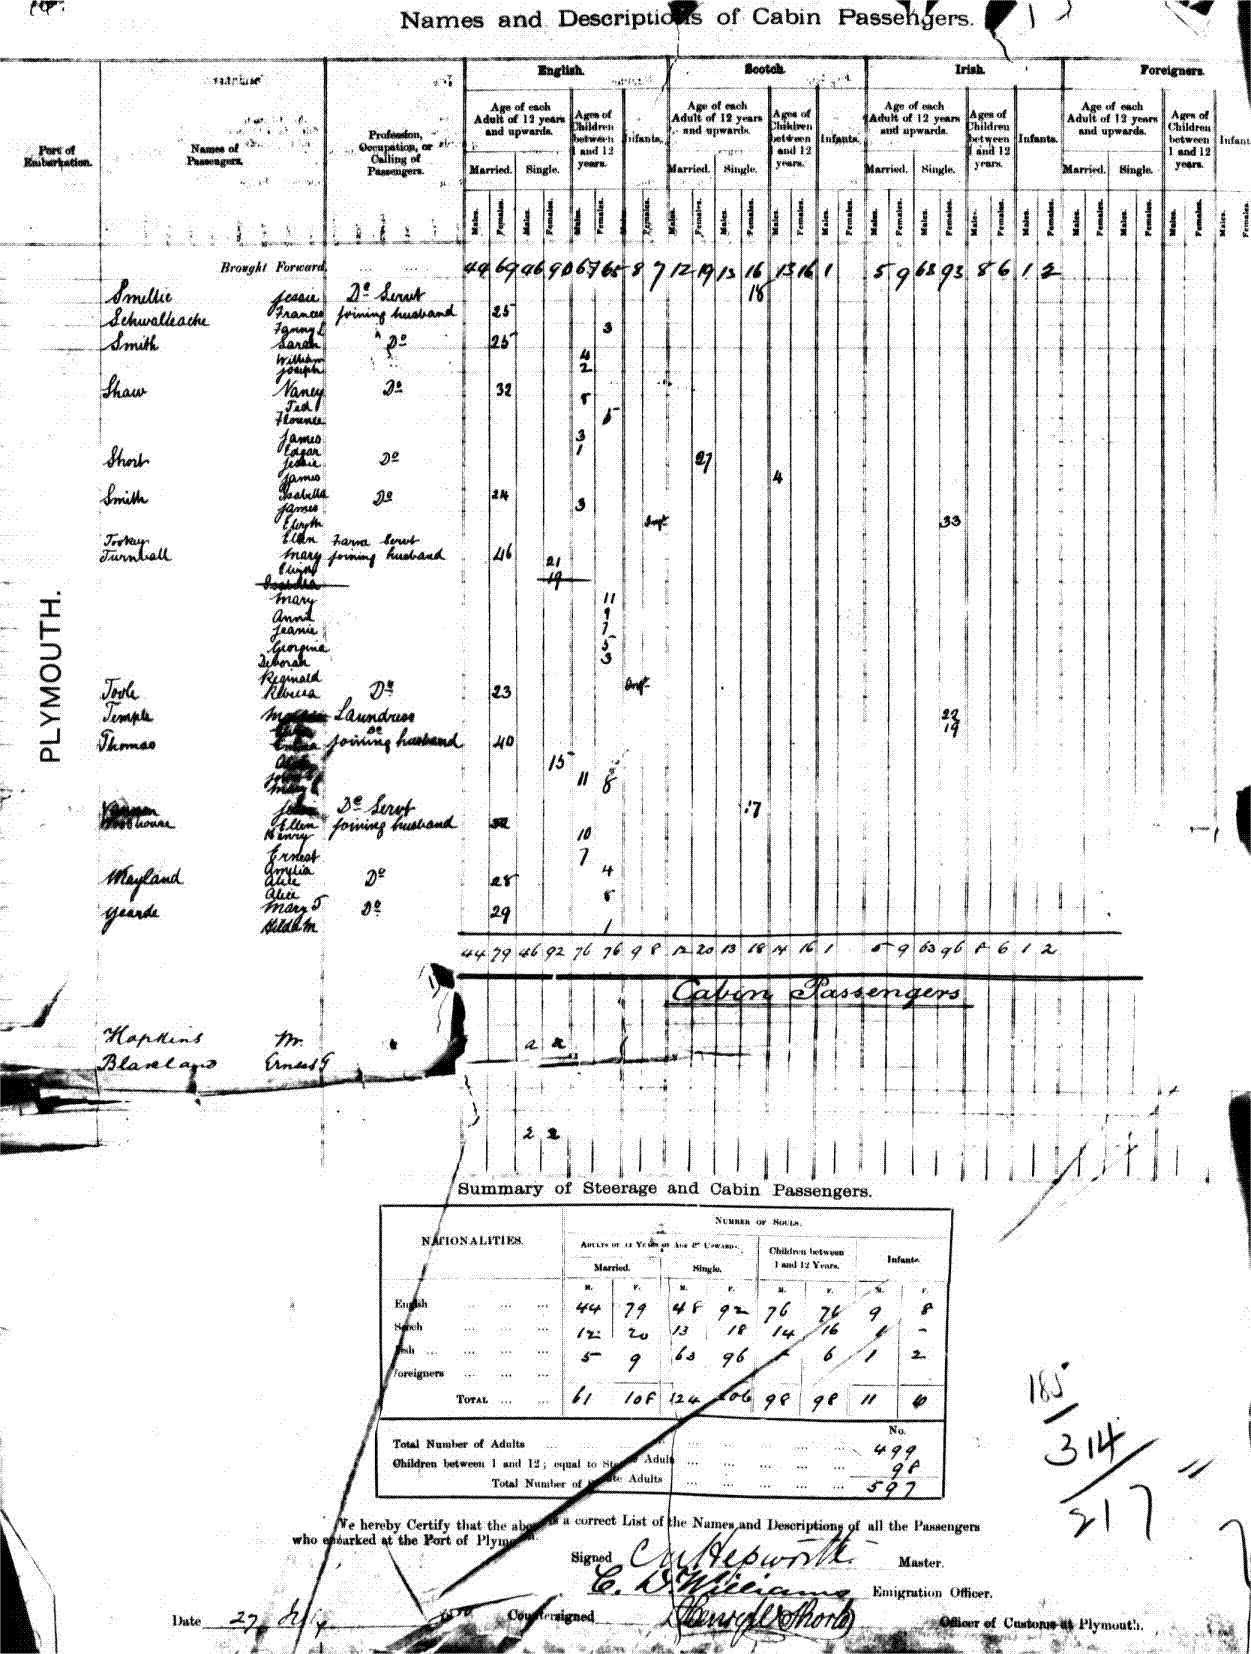 Names and Descriptions of Cabin Passengers.
English. Scotch. Irish. Foreigners.
Port of Embarkation. Names of Passengers. Profession, Occupation, or Calling of Passengers.
Age of each Adult of 12 years and upwards. Ages of Children between 1 and 12 years. Infants. Age of each Adult of 12 years and upwards. Ages of Children between 1 and 12 years. Infants. Age of each Adult of 12 years and upwards. Ages of Children between 1 and 12 years. Infants. Age of each Adult of 12 years and upwards. Ages of Children between 1 and 12 years. Infant
Married. Single. Married. Single. Married. Single. Married. Single.
Males. Females. Males. Females. Males. Females. Males. Females. Males. Females. Males. Females. Males. Females. Males. Females. Males. Females. Males. Females. Males. Females. Males. Females. Males. Females. Males. Females. Males. Females. Males. Females.
Brought Forward 44 69 46 90 67 65 8 7 12 19 13 16 13 16 1 5 9 63 93 8 6 1 2
Smellie Jessie Do Servt 18
Schwalleache Frances joining husband 25
Fanny L 3
Smith Sarah Do 25
William 4
Joseph 2
Shaw Nancy Do 32
Ted 8
Florence 5
James 3
Edgar 1
Short Jessie Do 27
James 4
Smith Isabella Do 24
James 3
Elizth Inft
Tookey Ellen Farm Servt 33
Turnball Mary joining husband 46
Eliza 21
Isabella 19
Mary 11
Annie 9
Jeanie 7
Georgina 5
Deborah 3
Reginald Inft
Toole Rebecca Do 23
Temple Laundress 22
Do 19
Thomas Emma joining husband 40
15
John 11
Mary 8
Do Servt 17
Woodhouse Ellen joining husband 32
Henry 10
Ernest 7
Amelia 4
Wayland Alice Do 28
Alice 8
Yearde Mary J Do 29
Hilda M 1
44 79 46 92 76 76 9 8 12 20 13 18 14 16 1 5 9 63 96 8 6 1 2
PLYMOUTH.
Cabin Passengers
Hopkins Mr.
Blaxland Ernest G
2 2
Summary of Steerage and Cabin Passengers.
NATIONALITIES. NUMBER OF SOULS.
ADULTS OF 12 YEARS OF AGE & UPWARDS. Children between 1 and 12 Years. Infants.
Married. Single.
M. F. M. F. M. F. M. F.
English 44 79 48 92 76 76 9 8
Scotch 12 20 13 18 14 16 1 -
Irish 5 9 63 96 6 1 2
Foreigners
TOTAL 61 108 124 206 98 98 11 10
No.
Total Number of Adults 499
Children between 1 and 12; equal to Statute Adults 98
Total Number of Statute Adults 597
185
314
217
We hereby Certify that the above is a correct List of the Names and Descriptions of all the Passengers
who embarked at the Port of Plymouth.
Signed C W Hepworth Master.
C. D. Williams Emigration Officer.
Date 27 July Countersigned Officer of Customs at Plymouth.